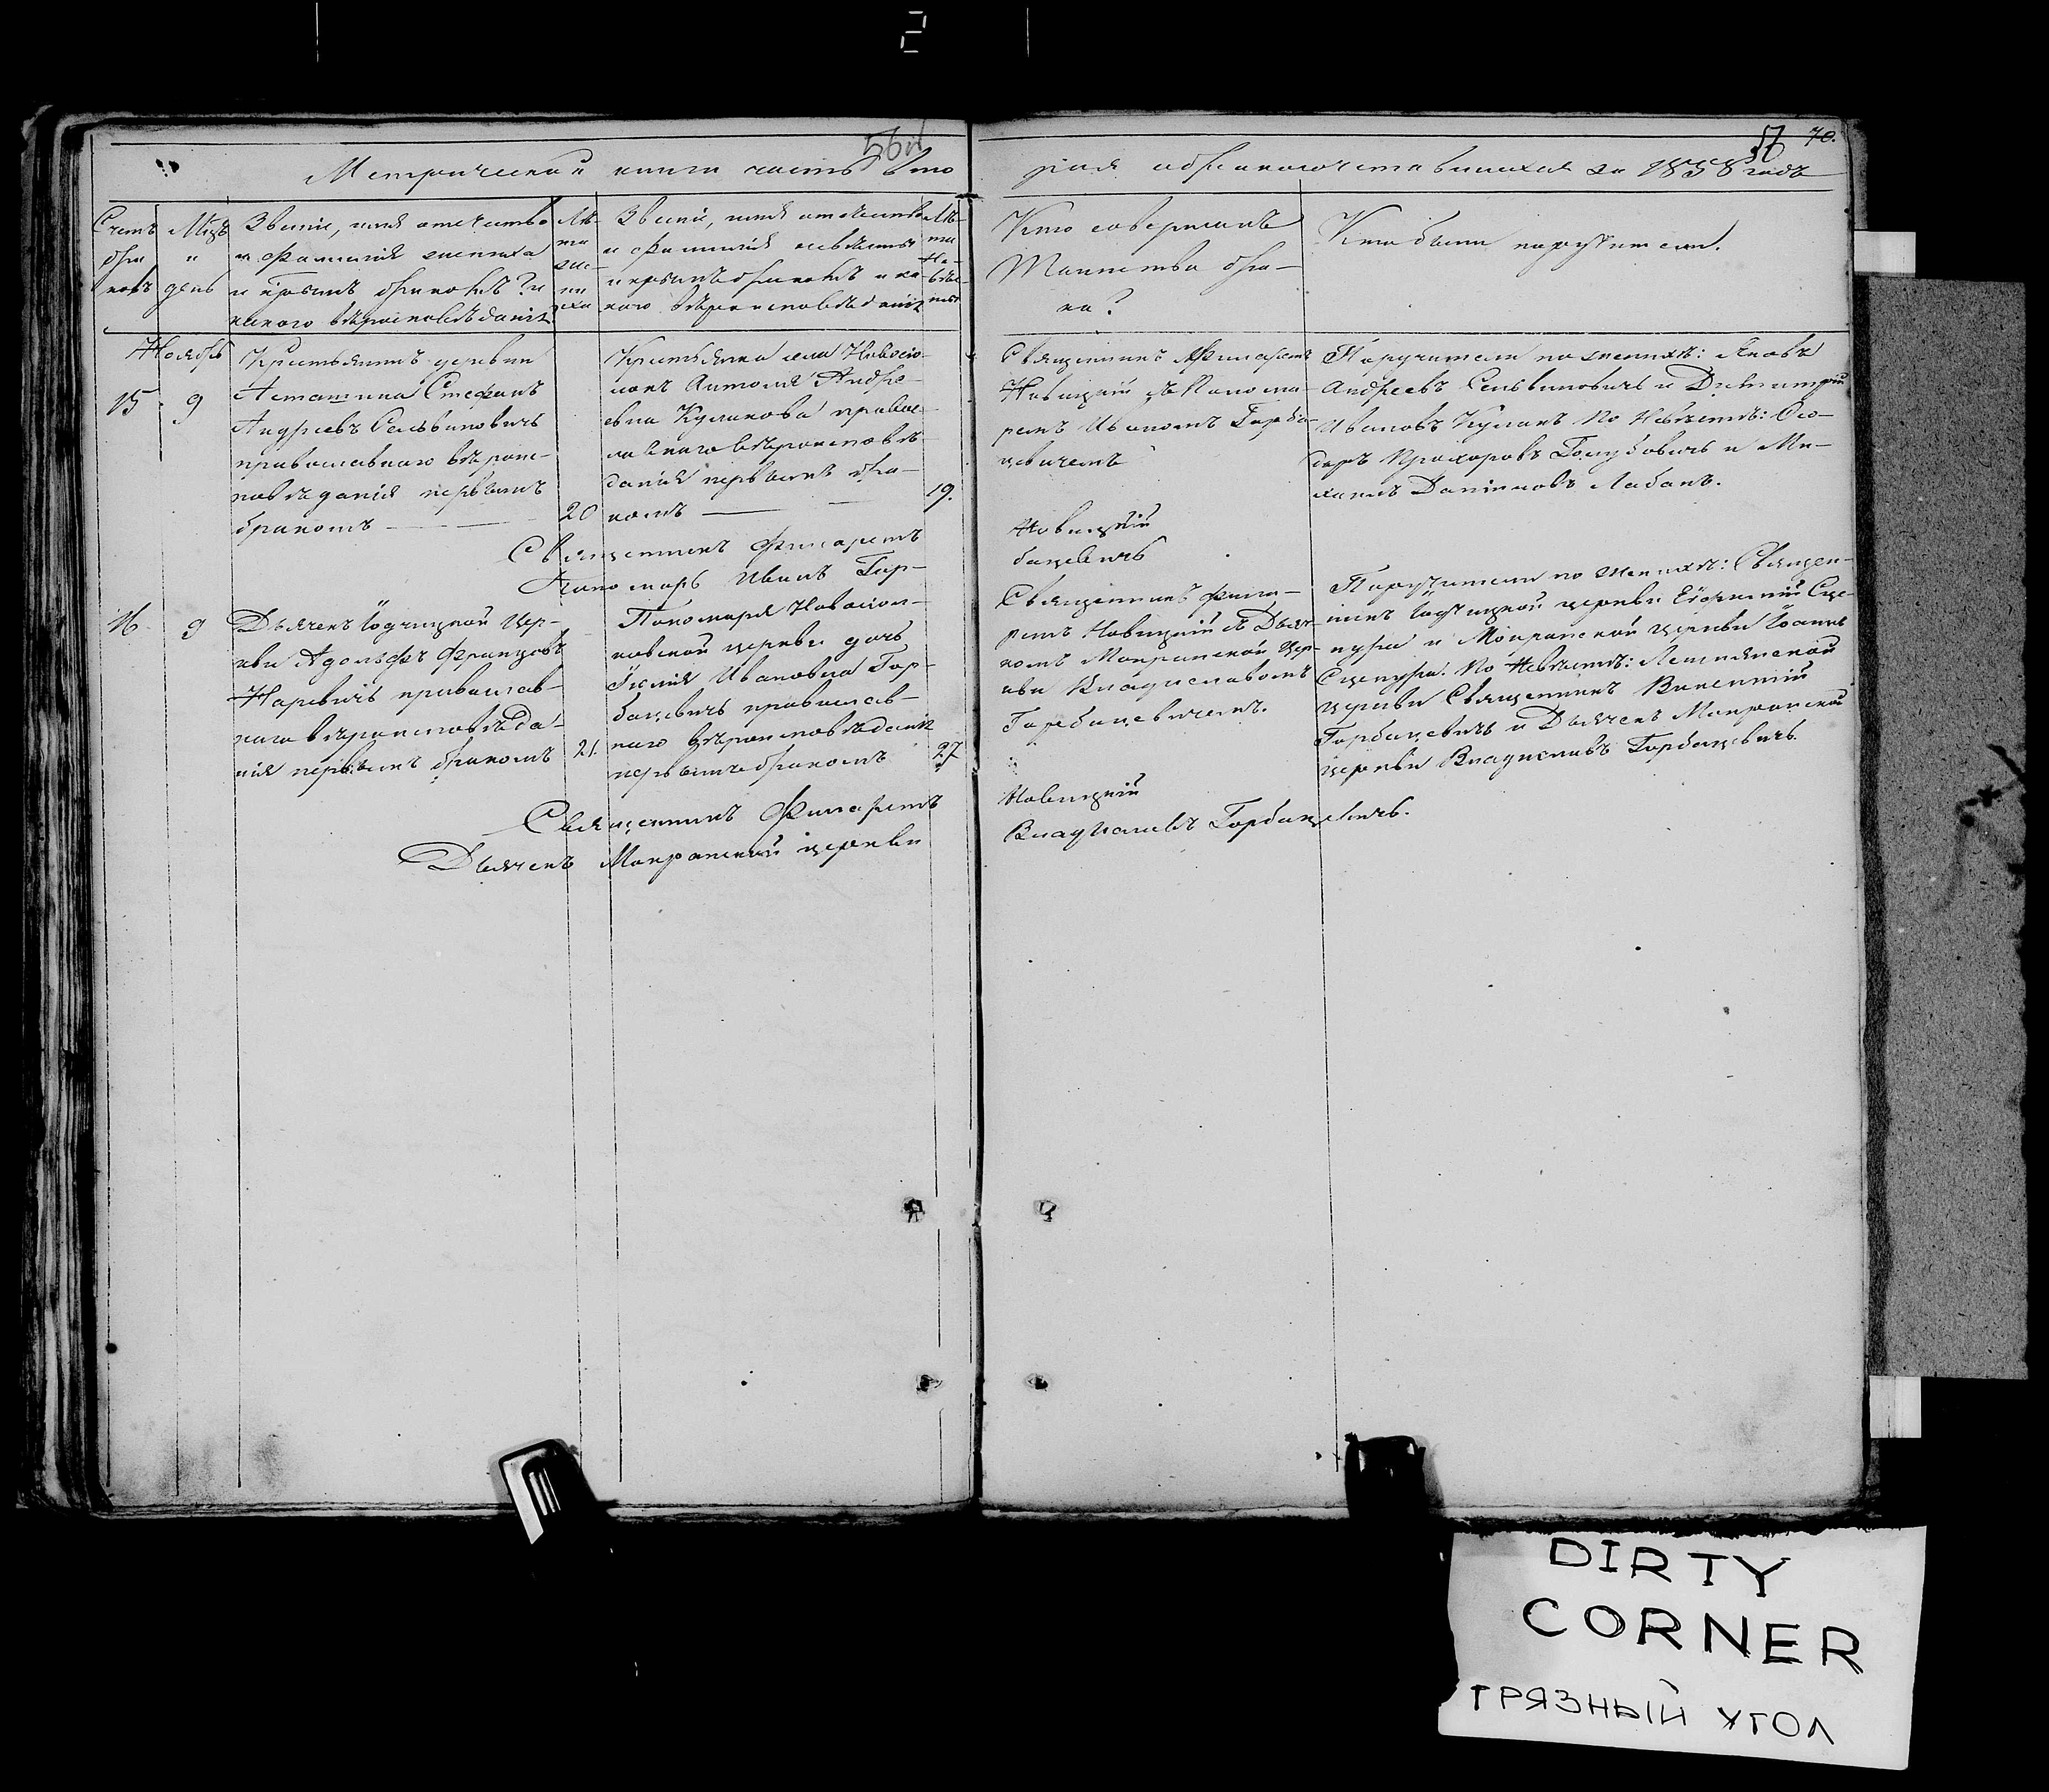 2
56
57 70.
Метрической книги часть вто
рая о бракосочетавшихся за 1858 годъ
Счетъ браковъ
Мцъ и день
Званіе, имя отчество
и фамилія жениха
и коимъ бракомъ? и
какого вѣроисповѣданія
Лѣ-
та
же-
ни
ха
Званіе, имя отчество
и фамилія невѣсты
и коимъ бракомъ и ка-
кого вѣроисповѣданія
Лѣ-
та
Не-
вѣс-
ты
Кто совершалъ
Таинство бра-
ка?
Кто были поручители.
Ноябрь
15 9
Крестьянинъ деревни
Стефанъ
Андреевъ Сельвиновичь
православнаго вѣроис-
повѣданія первымъ
бракомъ
20
Крестьянка села Новосіо-
локъ Андре-
евна Куликова правос-
лавнаго вѣроисповѣ-
данія первымъ бра-
комъ
19.
Священникъ Филаретъ
Новицкій съ Понома-
ремъ Иваномъ Горба-
цевичемъ
Поручители по женихѣ: Яковъ
Андреевъ Сельвиновичь и Дмитрій
Ивановъ Кулакъ По Невѣстѣ:
Прохоровъ Голубовичь и Ми-
хаилъ Даниловъ Лабанъ.
Священникъ Филаретъ Новицкій
Пономарь Иванъ Гор- бацевичь
16 9
Дьячекъ Іодчицкой Цер-
кви Адольфъ Францовъ
Наревичь православ-
наго вѣроисповѣда-
нія первымъ бракомъ
21.
Пономаря Новосіол-
ковской церкви дочь
Іюлія Ивановна Гор-
бацевичь православ-
наго вѣроисповѣданія
первымъ бракомъ
27
Священникъ Фила-
ретъ Новицкій съ Дьяч-
комъ Мокранской Цер-
кви Владиславомъ
Горбацевичемъ.
Поручители по женихѣ: Священ-
никъ Іодчицкой церкви Сце-
пура и Мокранской Церкви Іоаннъ
Сцепура. По Невѣстѣ:
церкви Священникъ Викентій
Горбацевичь и Дьячекъ Мокранской
церкви Владиславъ Горбацевичь.
Священникъ Филаретъ Новицкій
Дьячекъ Мокранской церкви Владиславъ Горбацевичь.
DIRTY
CORNER
ГРЯЗНЫЙ УГОЛ